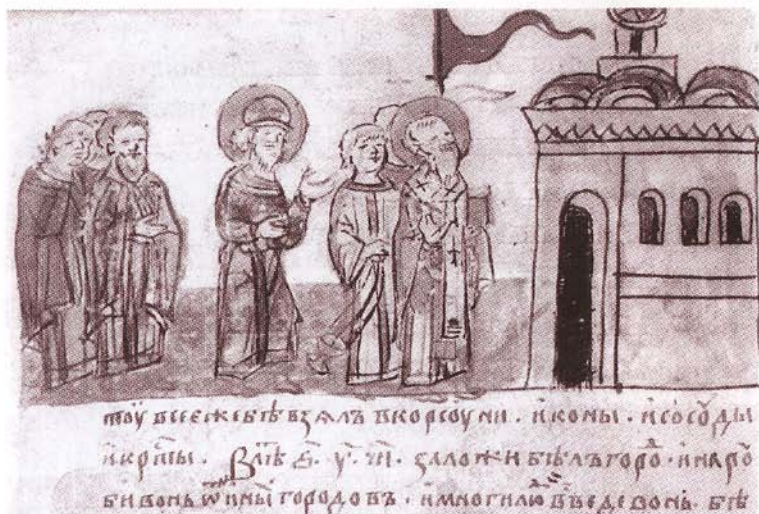 тоу всеежебѣ взялъ вкорсоуни . иконы . исосоуды
икрⷭ҇ты . Влѣⷮ ѕ҃ . у҃ . ч҃и . заложи бѣлъгороⷣ . инаро
бивонь ѿины городовъ . имногилюⷣ въведевонь . бѣ